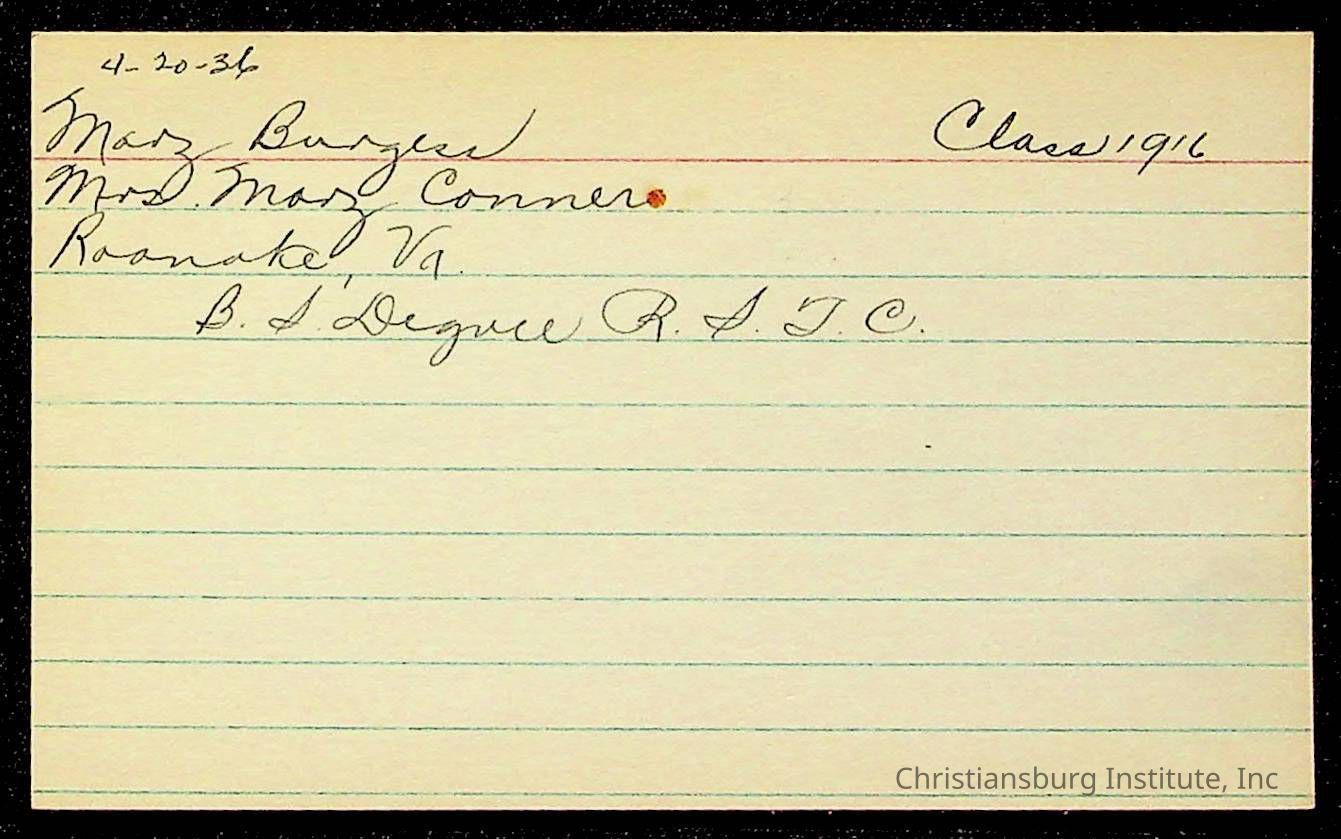 4-20-36
Mary Burgess Class 1916
Mrs. Mary Conner
Roanoke, Va.
B. S. Degree R. S. T. C.
Christiansburg Institute, Inc